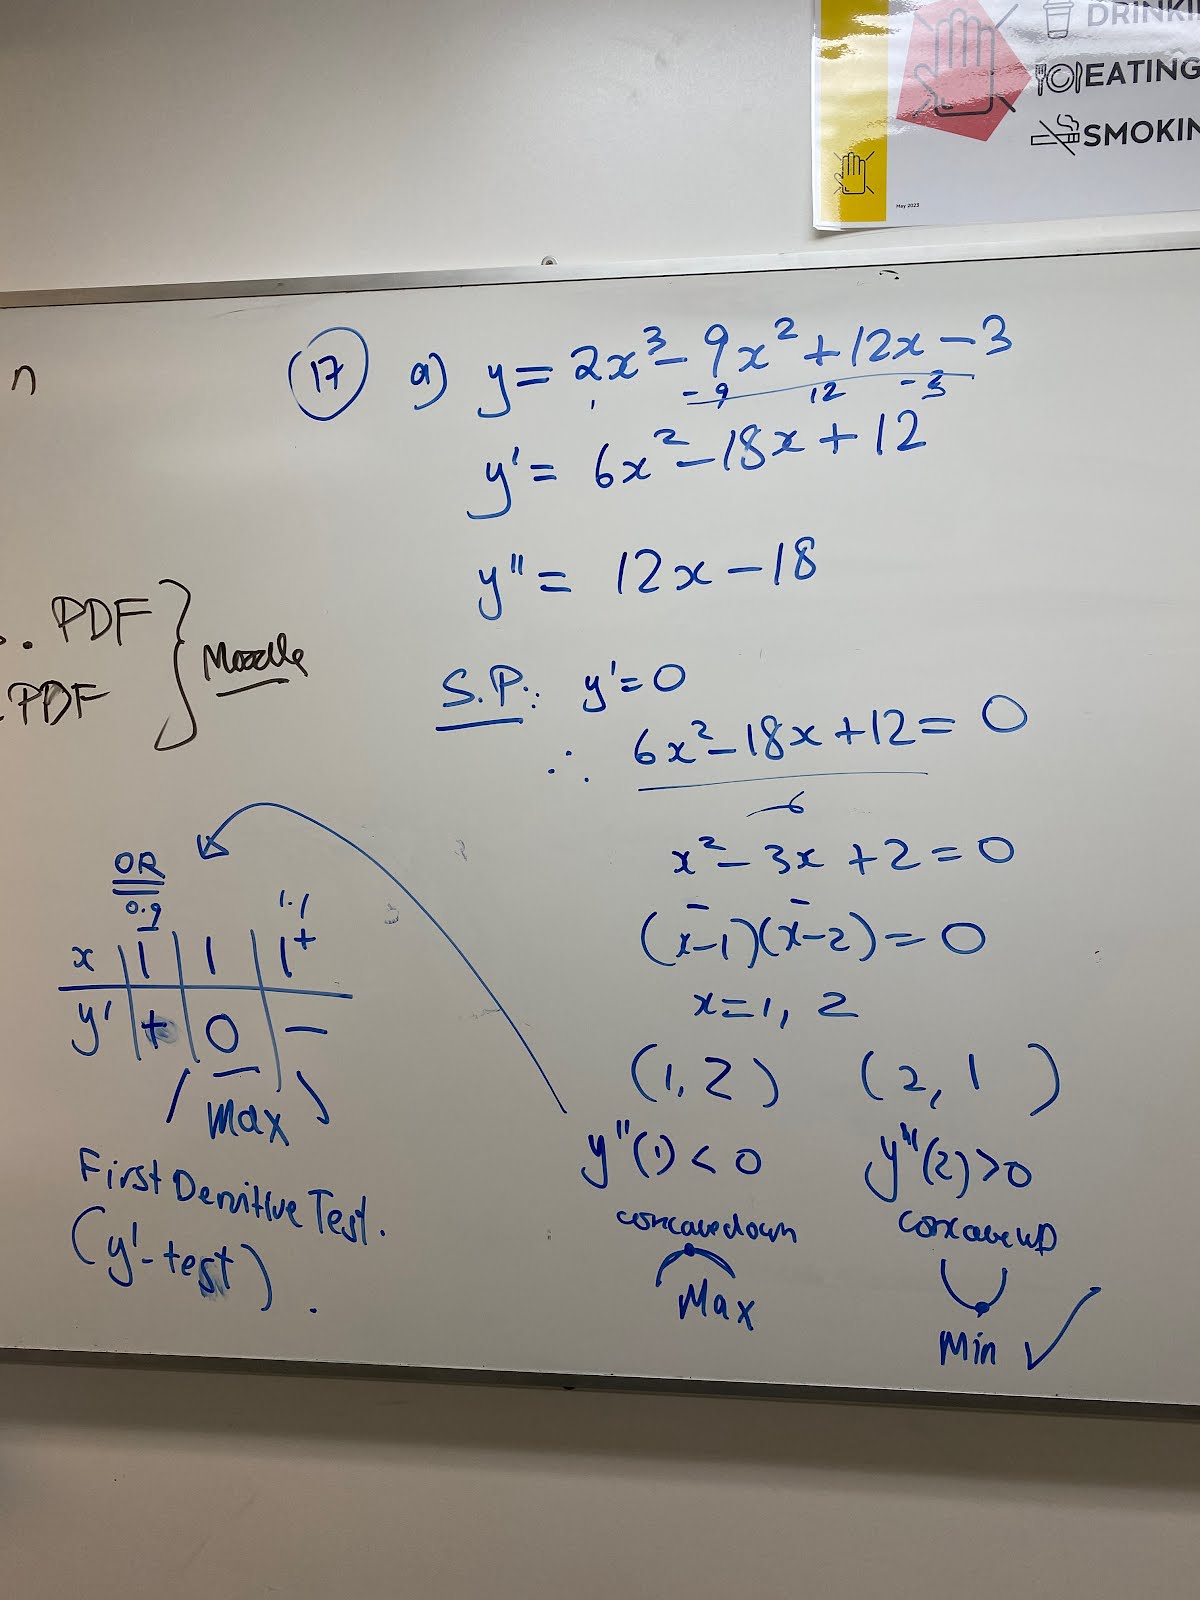 DRINKI
EATING
SMOKIN
May 2023
n
17 a) y = 2x³ - 9x² + 12x - 3
-9 12 -3
y' = 6x² - 18x + 12
y'' = 12x - 18
. PDF
.PDF
Moodle
S.P.: y' = 0
∴ 6x² - 18x + 12 = 0
6
x² - 3x + 2 = 0
(x-1)(x-2) = 0
x = 1, 2
(1, 2) (2, 1)
y''(1) < 0 y''(2) > 0
concave down concave up
Max Min ✓
OR
0.9 1.1
x 1⁻ 1 1⁺
y' + 0 -
/ — \
Max
First Derivitive Test.
(y'-test).